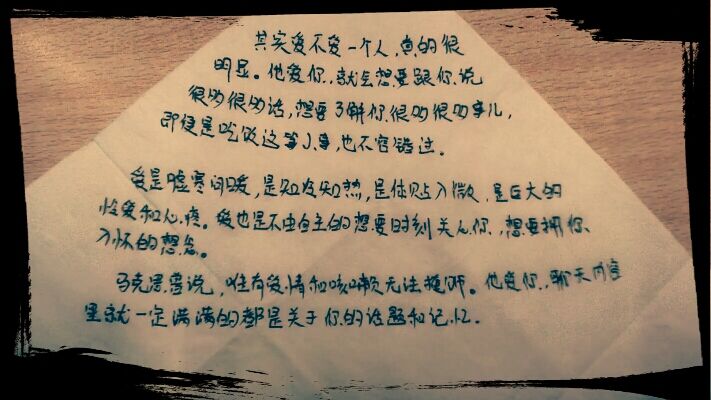 其实爱不爱一个人,真的很
明显。他爱你,就会想要跟你说
很多很多话,想要了解你很多很多事儿,
即使是吃饭这等小事,也不容错过。
爱是嘘寒问暖,是知疼知热,是体贴入微,是巨大的
怜爱和心疼。爱也是不由自主的想要时刻关心你,想要拥你
入怀的想念。
马克思曾说,唯有爱情和咳嗽无法掩饰。他爱你,聊天内容
里就一定满满的都是关于你的话题和记忆.